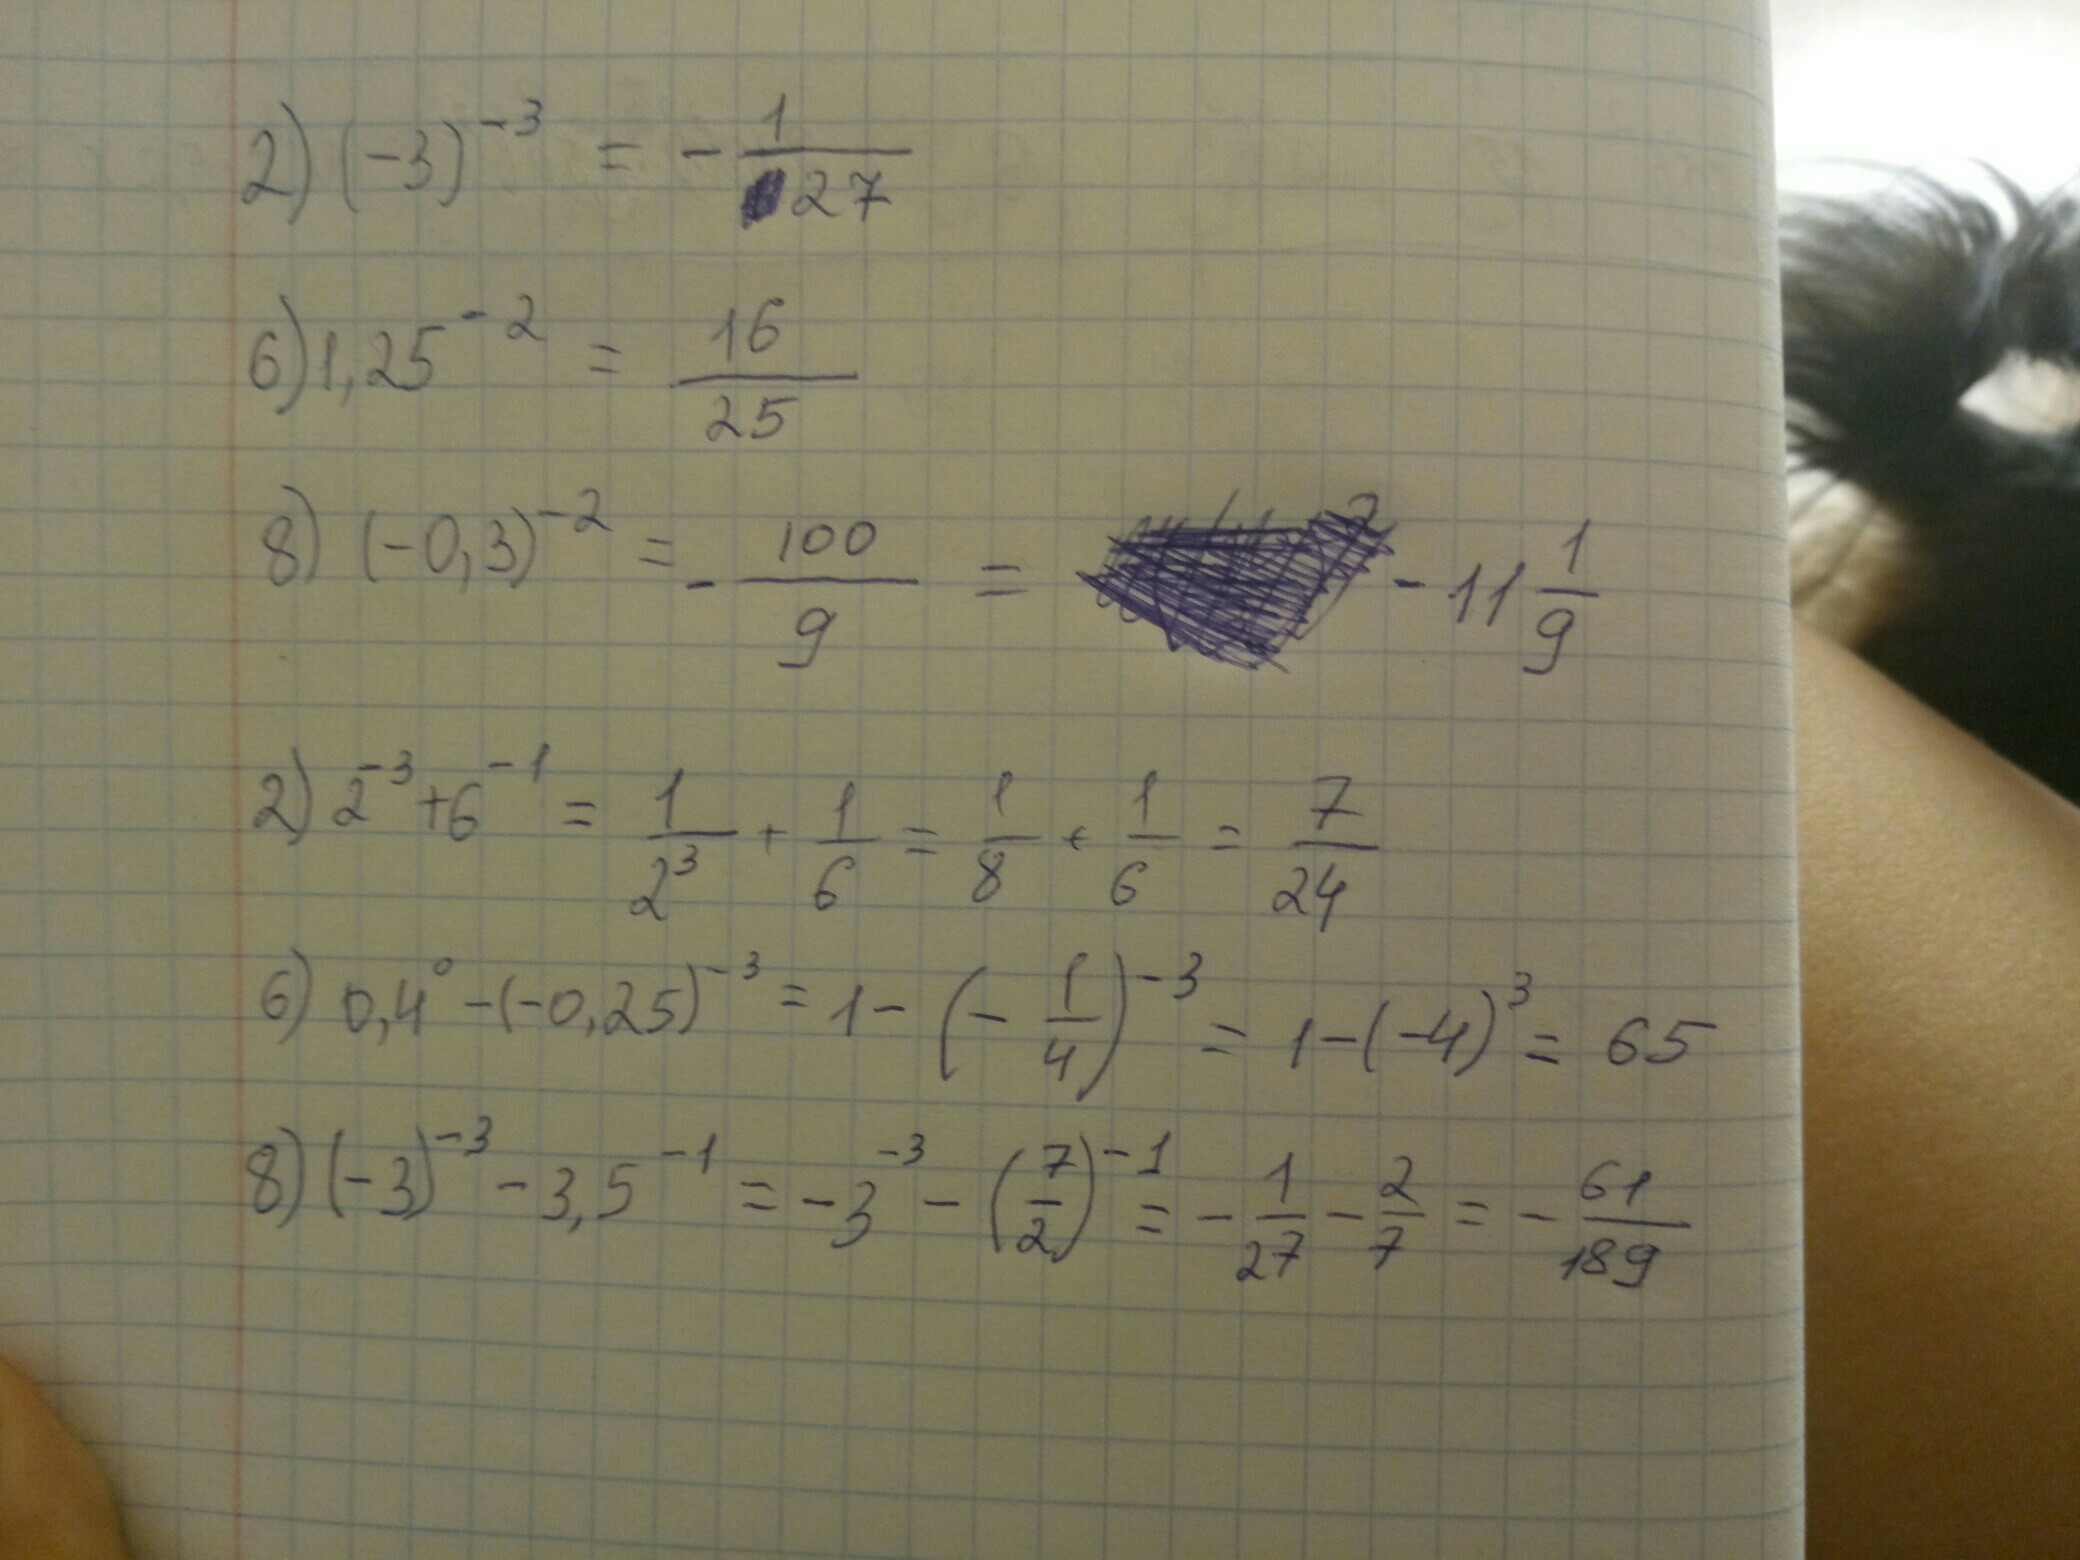 2) (-3)^-3 = - 1/27
6) 1,25^-2 = 16/25
8) (-0,3)^-2 = - 100/9 = - 11 1/9
2) 2^-3 + 6^-1 = 1/2^3 + 1/6 = 1/8 + 1/6 = 7/24
6) 0,4^0 - (-0,25)^-3 = 1 - (- 1/4)^-3 = 1 - (-4)^3 = 65
8) (-3)^-3 - 3,5^-1 = -3^-3 - (7/2)^-1 = - 1/27 - 2/7 = - 61/189